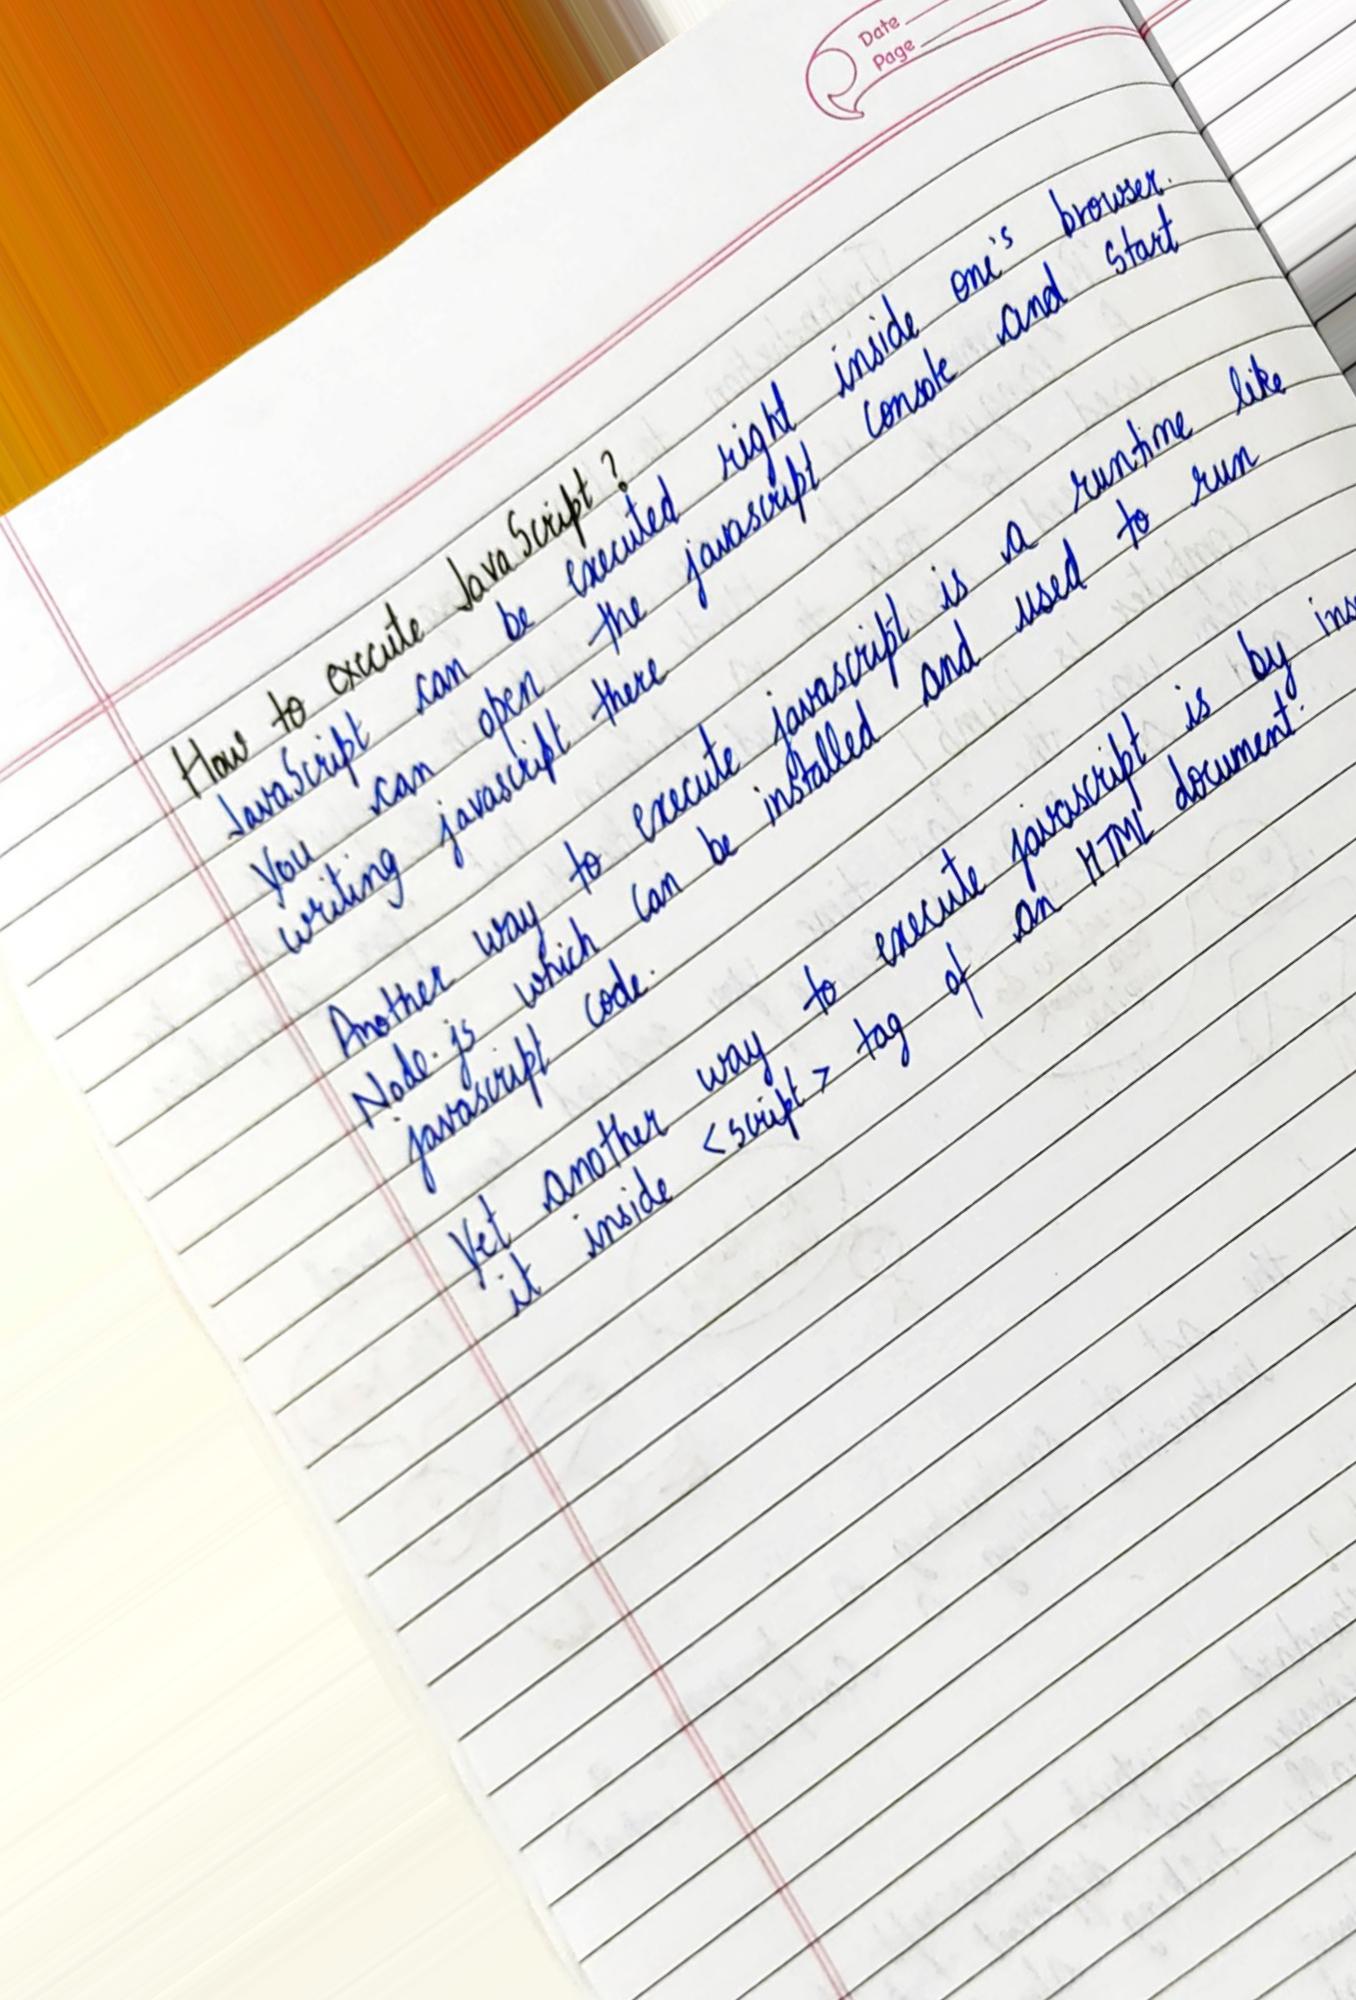 Date
Page
How to execute JavaScript ?
JavaScript can be executed right inside one's browser.
You can open the javascript console and start
writing javascript there
Another way to execute javascript is a runtime like
Node.js which can be installed and used to run
javascript code.
Yet another way to execute javascript is by
it inside <script> tag of an HTML document.